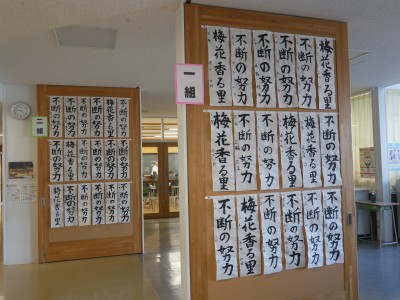 一組
梅花香る里
不断の努力
不断の努力
不断の努力
不断の努力
梅花香る里
梅花香る里
不断の努力
不断の努力
梅花香る里
梅花香る里
不断の努力
不断の努力
梅花香る里
不断の努力
不断の努力
不断の努力
不断の努力
二組
不断の努力
梅花香る里
不断の努力
不断の努力
梅花香る里
不断の努力
不断の努力
不断の努力
不断の努力
不断の努力
不断の努力
不断の努力
梅花香る里
不断の努力
不断の努力
不断の努力
不断の努力
不断の努力